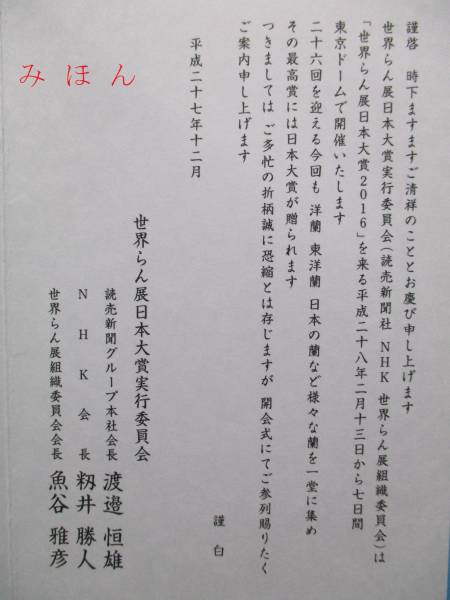 謹啓　時下ますますご清祥のこととお慶び申し上げます
世界らん展日本大賞実行委員会(読売新聞社　NHK　世界らん展組織委員会)は
「世界らん展日本大賞2016」を来る平成二十八年二月十三日から七日間
東京ドームで開催いたします
二十六回を迎える今回も　洋蘭　東洋蘭　日本の蘭など様々な蘭を一堂に集め
その最高賞には日本大賞が贈られます
つきましては　ご多忙の折柄誠に恐縮とは存じますが　開会式にてご参列賜りたく
ご案内申し上げます
謹白
平成二十七年十二月
世界らん展日本大賞実行委員会
読売新聞グループ本社会長　渡邉　恒雄
NHK会長　籾井　勝人
世界らん展組織委員会会長　魚谷　雅彦
みほん